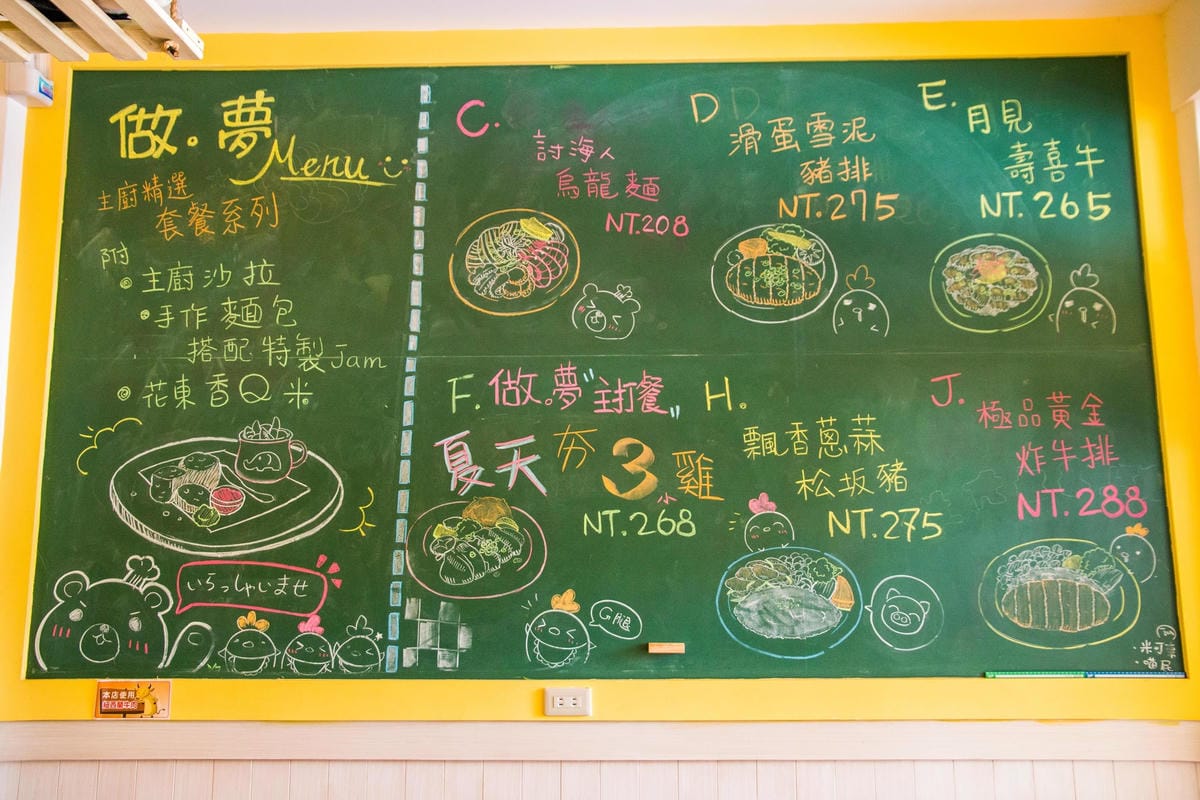 做。夢
Menu
主廚精選
套餐系列
附
主廚沙拉
手作麵包
搭配特製Jam
花東香Q米
いらっしゃいませ
C.
討海人
烏龍麵
NT.208
D
滑蛋雪泥
豬排
NT.275
E.
月見
壽喜牛
NT.265
F. 做。夢"主打餐"
夏天夯
3小雞
NT.268
G腿
H.
飄香蔥蒜
松坂豬
NT.275
J.
極品黃金
炸牛排
NT.288
本店使用
紐西蘭牛肉